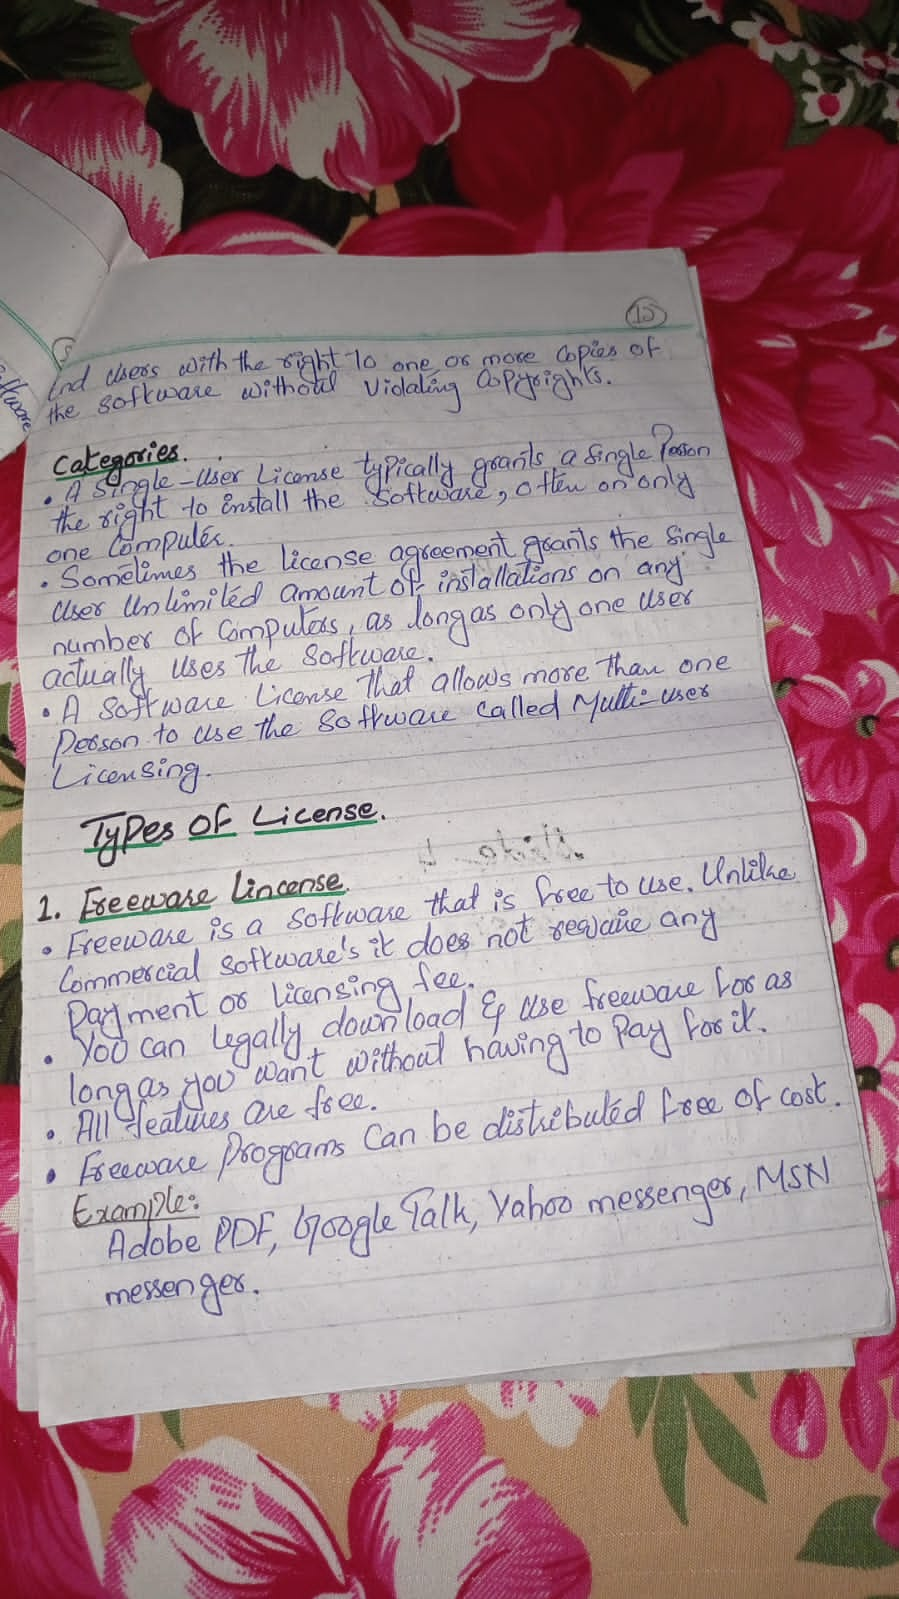 15
End Users with the right to one or more Copies of
the software without Violating Copyrights.
Categories.
• A Single-User License typically grants a Single Person
the right to install the Software, often on only
one Computer.
• Sometimes the license agreement grants the Single
User Unlimited amount of installations on any
number of Computers, as long as only one user
actually uses the Software.
• A Software License that allows more than one
Person to use the Software called Multi-user
Licensing.
Types of License.
1. Freeware Lincense.
• Freeware is a Software that is free to use. Unlike
Commercial Software's it does not require any
Payment or licensing fee.
• You can legally download & use freeware for as
long as you want without having to Pay for it.
• All features are free.
• Freeware Programs Can be distributed free of cost.
Example:
Adobe PDF, Google Talk, Yahoo messenger, MSN
messenger.